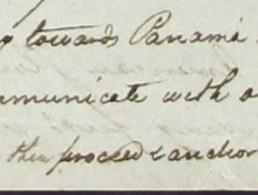 towards Panamá
mmunicate with
then proceed & anchor